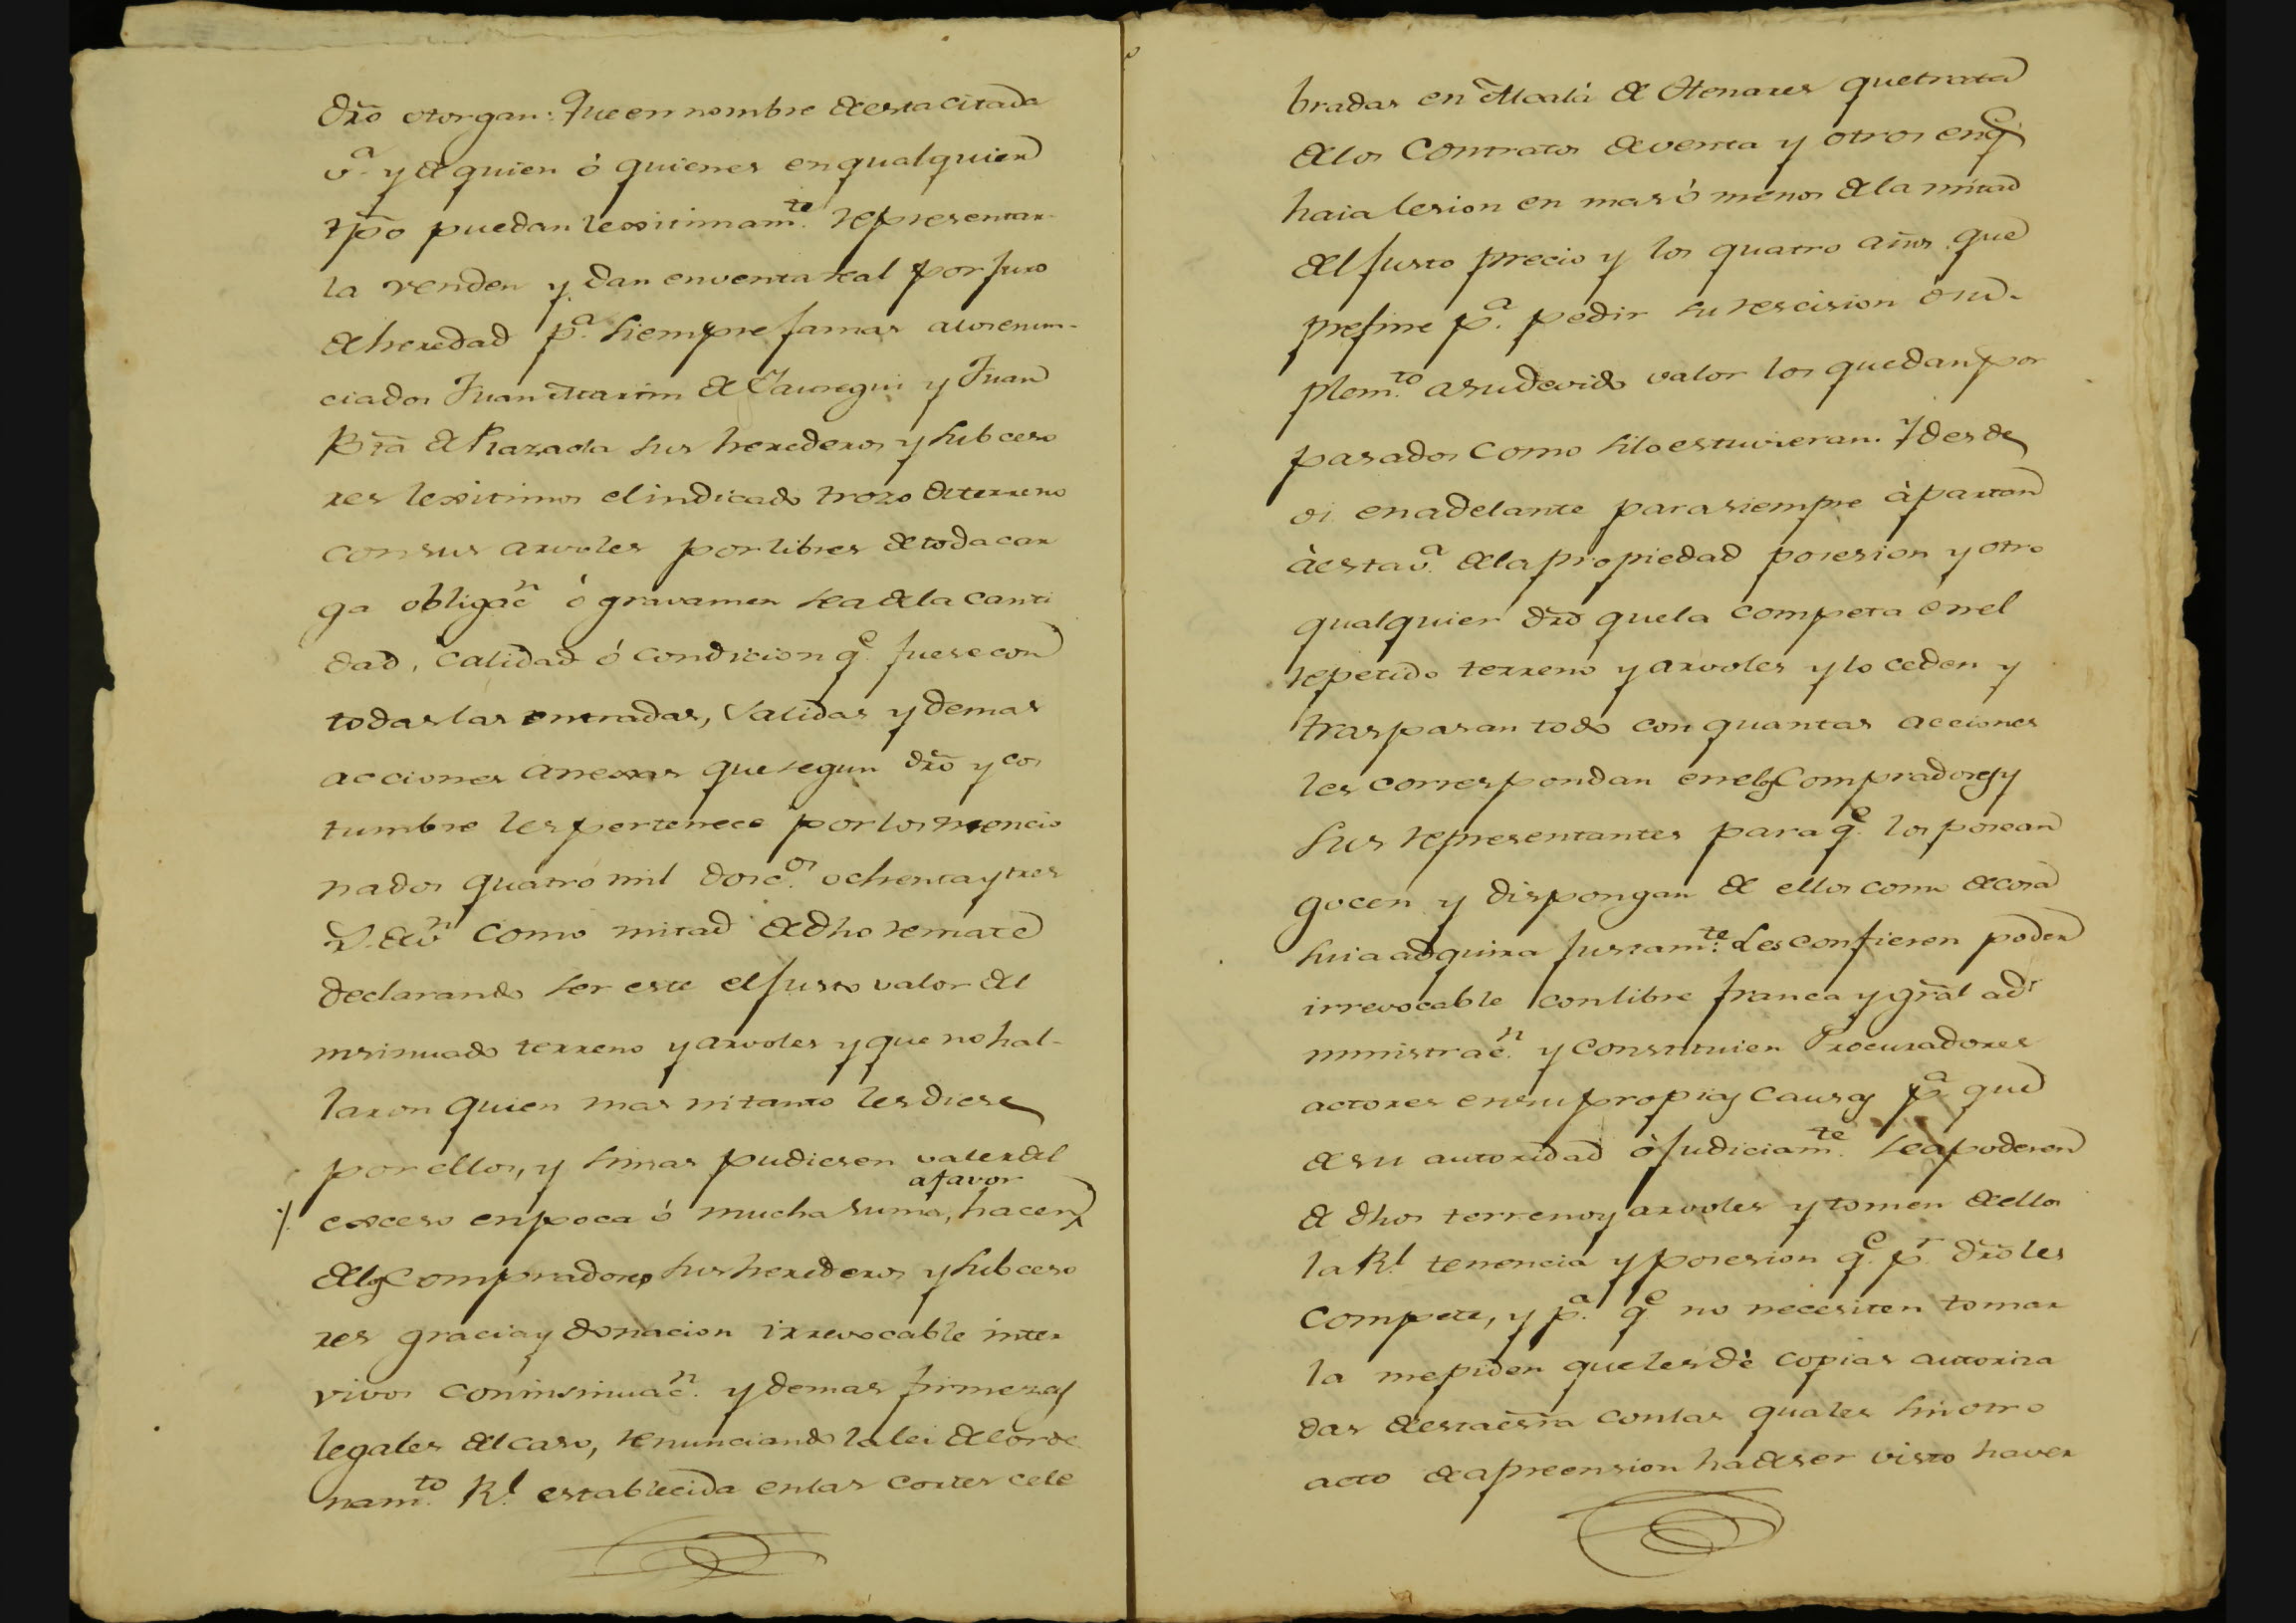 dr̃o otorgan: Que en nombre de esta citada
v.ª y de quien ó quienes en qualquier
tp̃o puedan lexitimam.te representar
la venden y dan en venta real por juro
de heredad p.ª siempre jamas a los enun-
ciados Juan Martin de Jauregui y Juan
Bta de sus herederos y subceso
res lexitimos el indicado trozo de terreno
con sus arvoles por libres de toda car
ga obligac.n ó gravamen sea de la canti
dad, calidad ó condicion q.e fuese con
todas las entradas, salidas y demas
acciones anexas que segun dr̃o y cos
tumbre les pertenece por los mencio
nados quatro mil dosc.os ochenta y tres
r.s de v.n como mitad de dho remate
declarando ser este el justo valor del
insinuado terreno y arvoles y que no hal-
laron quien mas ni tanto les diese
por ellos, y si mas pudiesen valer del
a favor
exceso en poca ó mucha suma, hacen
de los Compradores sus herederos y subceso
res gracia y donacion irrevocable inter
vivos con insinuac.n y demas firmezas
legales del caso, renunciando la lei del orde
nam.to R.l establecida en las cortes cele
bradas en Alcalá de Henares que trata
de los Contratos de venta y otros en q.e
haia lesion en mas ó menos de la mitad
del justo precio y los quatro años que
prefine p.ª pedir su rescision ó su
plem.to a su devido valor los quedan por
pasados como si lo estuvieran. Y desde
oi en adelante para siempre àpartan
à esta v.ª de la propiedad posesion y otro
qualquier dr̃o que la competa en el
repetido terreno y arvoles y lo ceden y
traspasan todo con quantas acciones
les correspondan en los Compradores y
sus representantes para q.e los posean
gocen y dispongan de ellos como de cosa
suia adquirida justam.te Les confieren poder
irrevocable con libre franca y gr̃al ad
ministrac.n y constituien Procuradores
actores en su propias causas p.ª que
de su autoridad ò judiciam.te se apoderen
de dhos terreno y arvoles y tomen de ellos
la R.l tenencia y posesion q.e p.r dr̃o les
compete, y p.ª q.e no necesiten tomar
la me piden que les dè copias autoriza
das de esta esr̃a con las quales sin otro
acto de apreension ha de ser visto haver